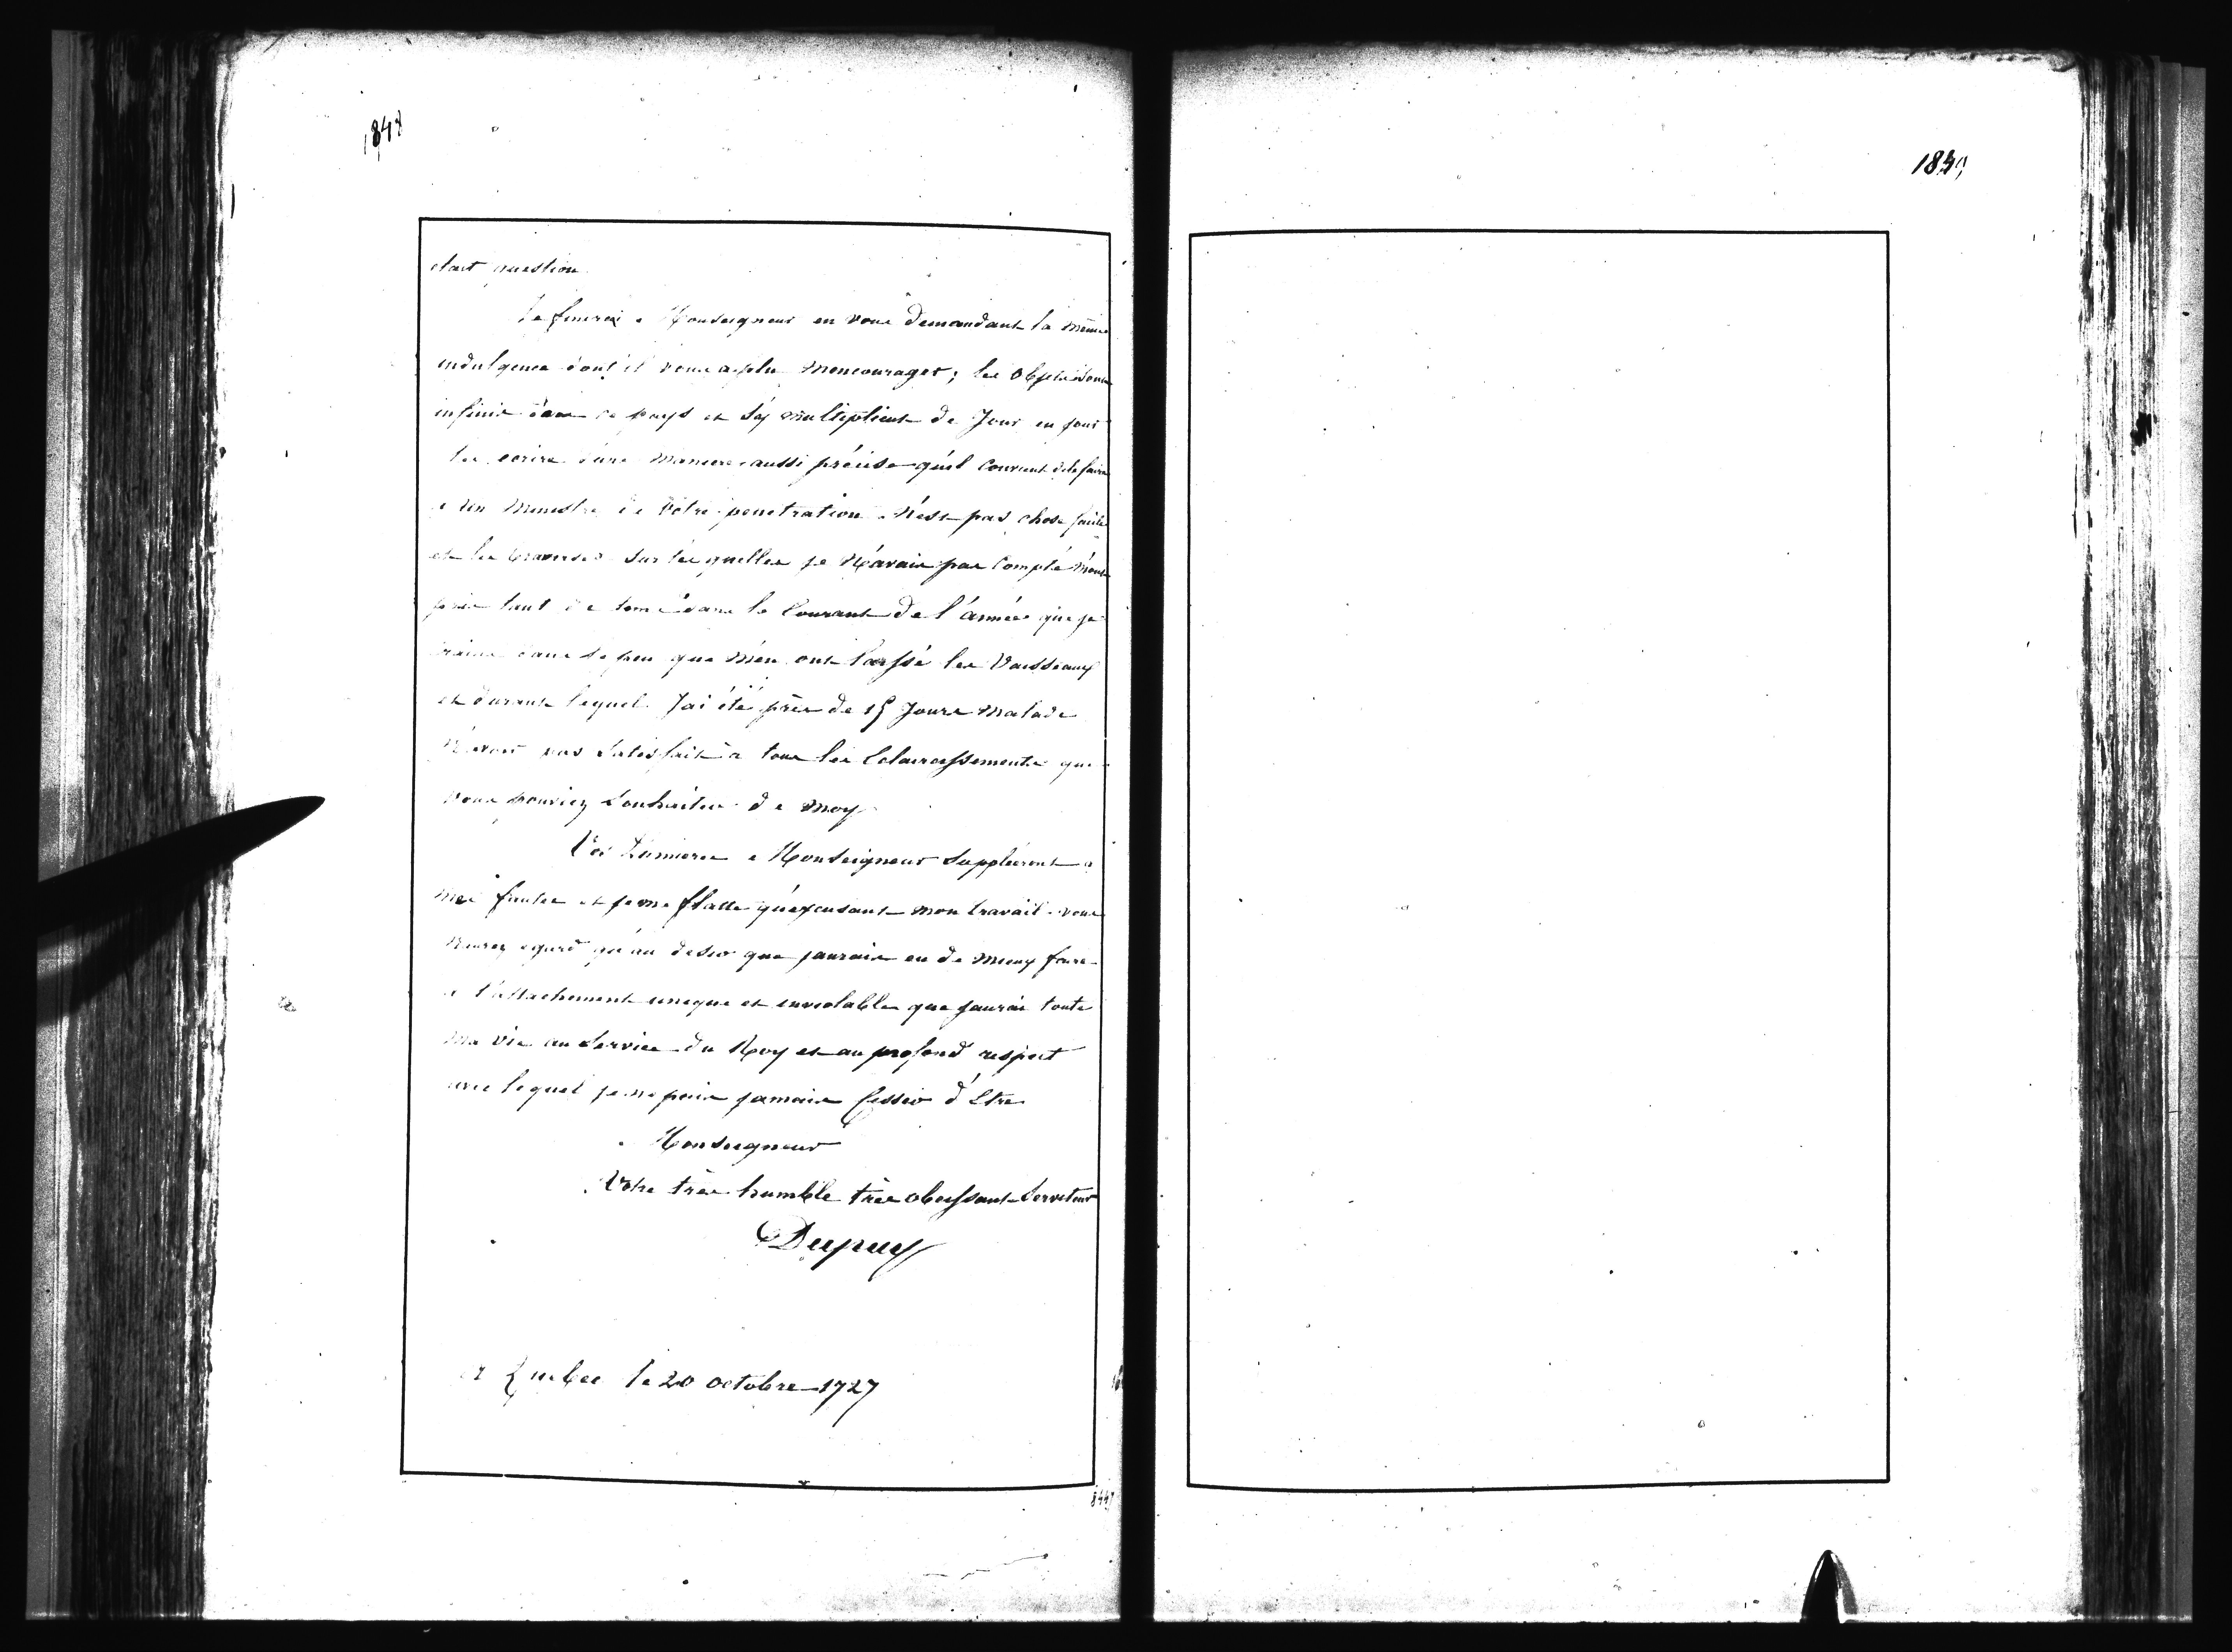 1848
etait question.
Je finirai Monseigneur en vous demandant la même
indulgence dont il vous a plu m'encourager; les objets sont
infinis dans ce pays et s'y multiplient de Jour en jour
les ecrire d'une maniere aussi précise qu'il convient de le faire
a un Ministre de Votre penetration n'est pas chose facile
et les traverses sur lesquelles je N'avais pas Compté m'ont
pris tant de tems dans le Courant de l'année que je
crains dans le peu que m'en ont laissé les Vaisseaux
et durant lequel J'ai été près de 15 Jours malade
N'avoir pas Satisfait à tous les Eclaircissements que
vous pouviez Souhaiter de moy
Vos Lumieres Monseigneur Suppléeront a
mes fautes et je me flatte qu'excusant mon travail vous
n'aurez egard qu'au desir que j'aurais eu de mieux faire
a l'attachement unique et inviolable que j'aurai toute
ma vie au Service du Roy et au profond respect
avec lequel je ne puis jamais Cesser d'Etre
Monseigneur
Votre très humble très obeissant Serviteur
Dupuy
a Quebec le 20 octobre 1727
1849